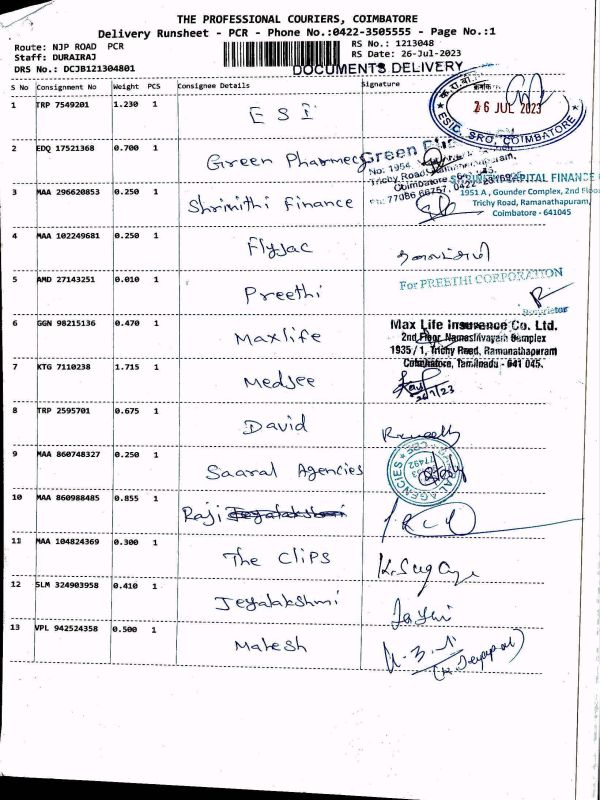 THE PROFESSIONAL COURIERS, COIMBATORE
Delivery Runsheet - PCR - Phone No.:0422-3505555 - Page No.:1
Route: NJP ROAD PCR
Staff: DURAIRAJ
DRS No.: DCJB121304801
RS No.: 1213048
RS Date: 26-Jul-2023
DOCUMENTS DELIVERY
S No Consignment No Weight PCS Consignee Details Signature
1 TRP 7549201 1.230 1 ESI
26 JUL 2023
ESIC, SRO, COIMBATORE
2 EDQ 17521368 0.700 1 Green Pharmecy
Green
No: 1954,
Trichy Road,
Coimbatore
Ph: 77086 66757, 0422
3 MAA 296620853 0.250 1 Shrimithi Finance
CAPITAL FINANCE
1951 A, Gounder Complex, 2nd Floor
Trichy Road, Ramanathapuram,
Coimbatore - 641045
4 MAA 102249681 0.250 1 Flyjac
5 AMD 27143251 0.010 1 Preethi
For PREETHI CORPORATION
Proprietor
6 GGN 98215136 0.470 1 Maxlife
Max Life Insurance Co. Ltd.
2nd Floor, Namashivayam Complex
1935 / 1, Trichy Road, Ramanathapuram
Coimbatore, Tamilnadu - 641 045.
7 KTG 7110238 1.715 1 Medsee
26/7/23
8 TRP 2595701 0.675 1 David
9 MAA 860748327 0.250 1 Saaral Agencies
AGENCIES
77492
10 MAA 860988485 0.855 1 Raji Jeyalakshmi
11 MAA 104824369 0.300 1 The Clips
12 SLM 324903958 0.410 1 Jeyalakshmi
13 VPL 942524358 0.500 1 Mahesh